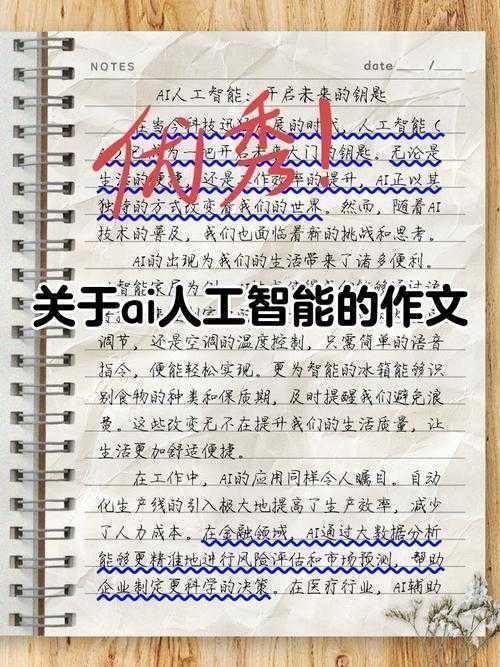 NOTES
date / /
AI人工智能：开启未来的钥匙
优秀！
在当今科技迅 展的时代，人工智能（
为一把开启未来大门 钥匙。无论是
生活的便 还是 作效率的提升，AI正以其
独特的方式改变着我们的世界。然而，随着AI
技术的普及，我们也面临着新的挑战和思考。
AI的出现为我们的生活带来了诸多便利。
关于ai人工智能的作文
调节，还是空调的温度控制，只需简单的语音
指令，便能轻松实现。更为智能的冰箱能够识
别食物的种类和保质期，及时提醒我们避免浪
费。这些改变无不在提升我们的生活质量，让
生活更加舒适便捷。
在工作中，AI的应用同样令人瞩目。自动
化生产线的引入极大地提高了生产效率，减少
了人力成本。在金融领域，AI通过大数据分析
能够更精准地进行风险评估和市场预测，帮助
企业制定更科学的决策。在医疗行业，AI辅助